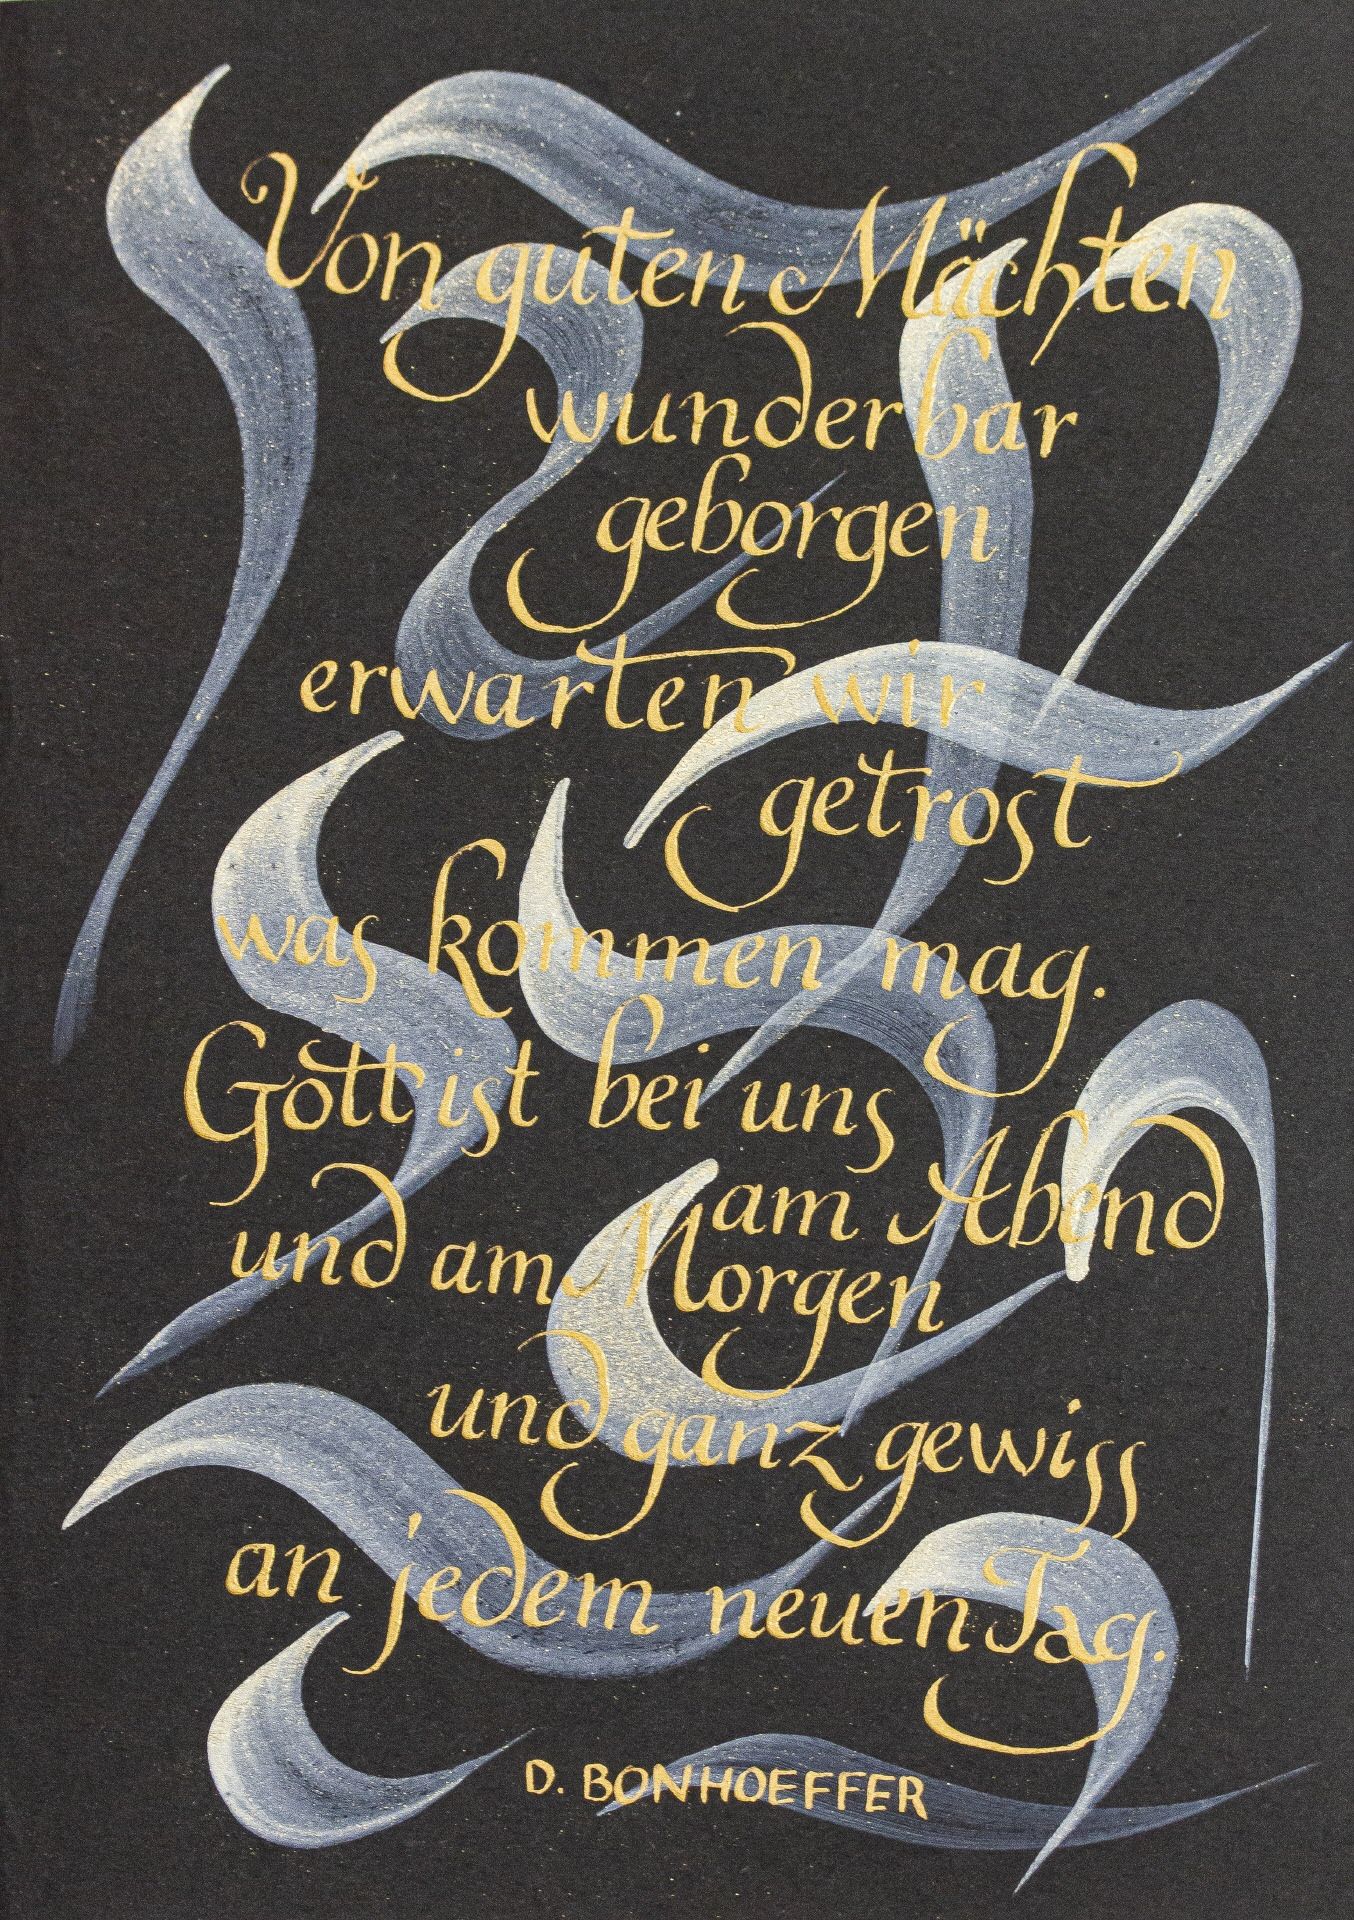 Von guten Mächten
wunderbar
geborgen
erwarten wir
getrost
was kommen mag.
Gott ist bei uns
am Abend
und am Morgen
und ganz gewiss
an jedem neuen Tag.
D. BONHOEFFER